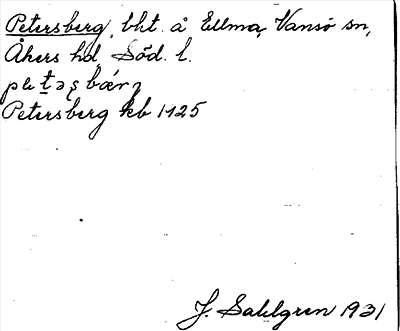 Petersberg, bht. å Ellma, Vansö sn,
Åkers hd Söd. l.
Petersberg kb 1725
J. Sahlgren 1931